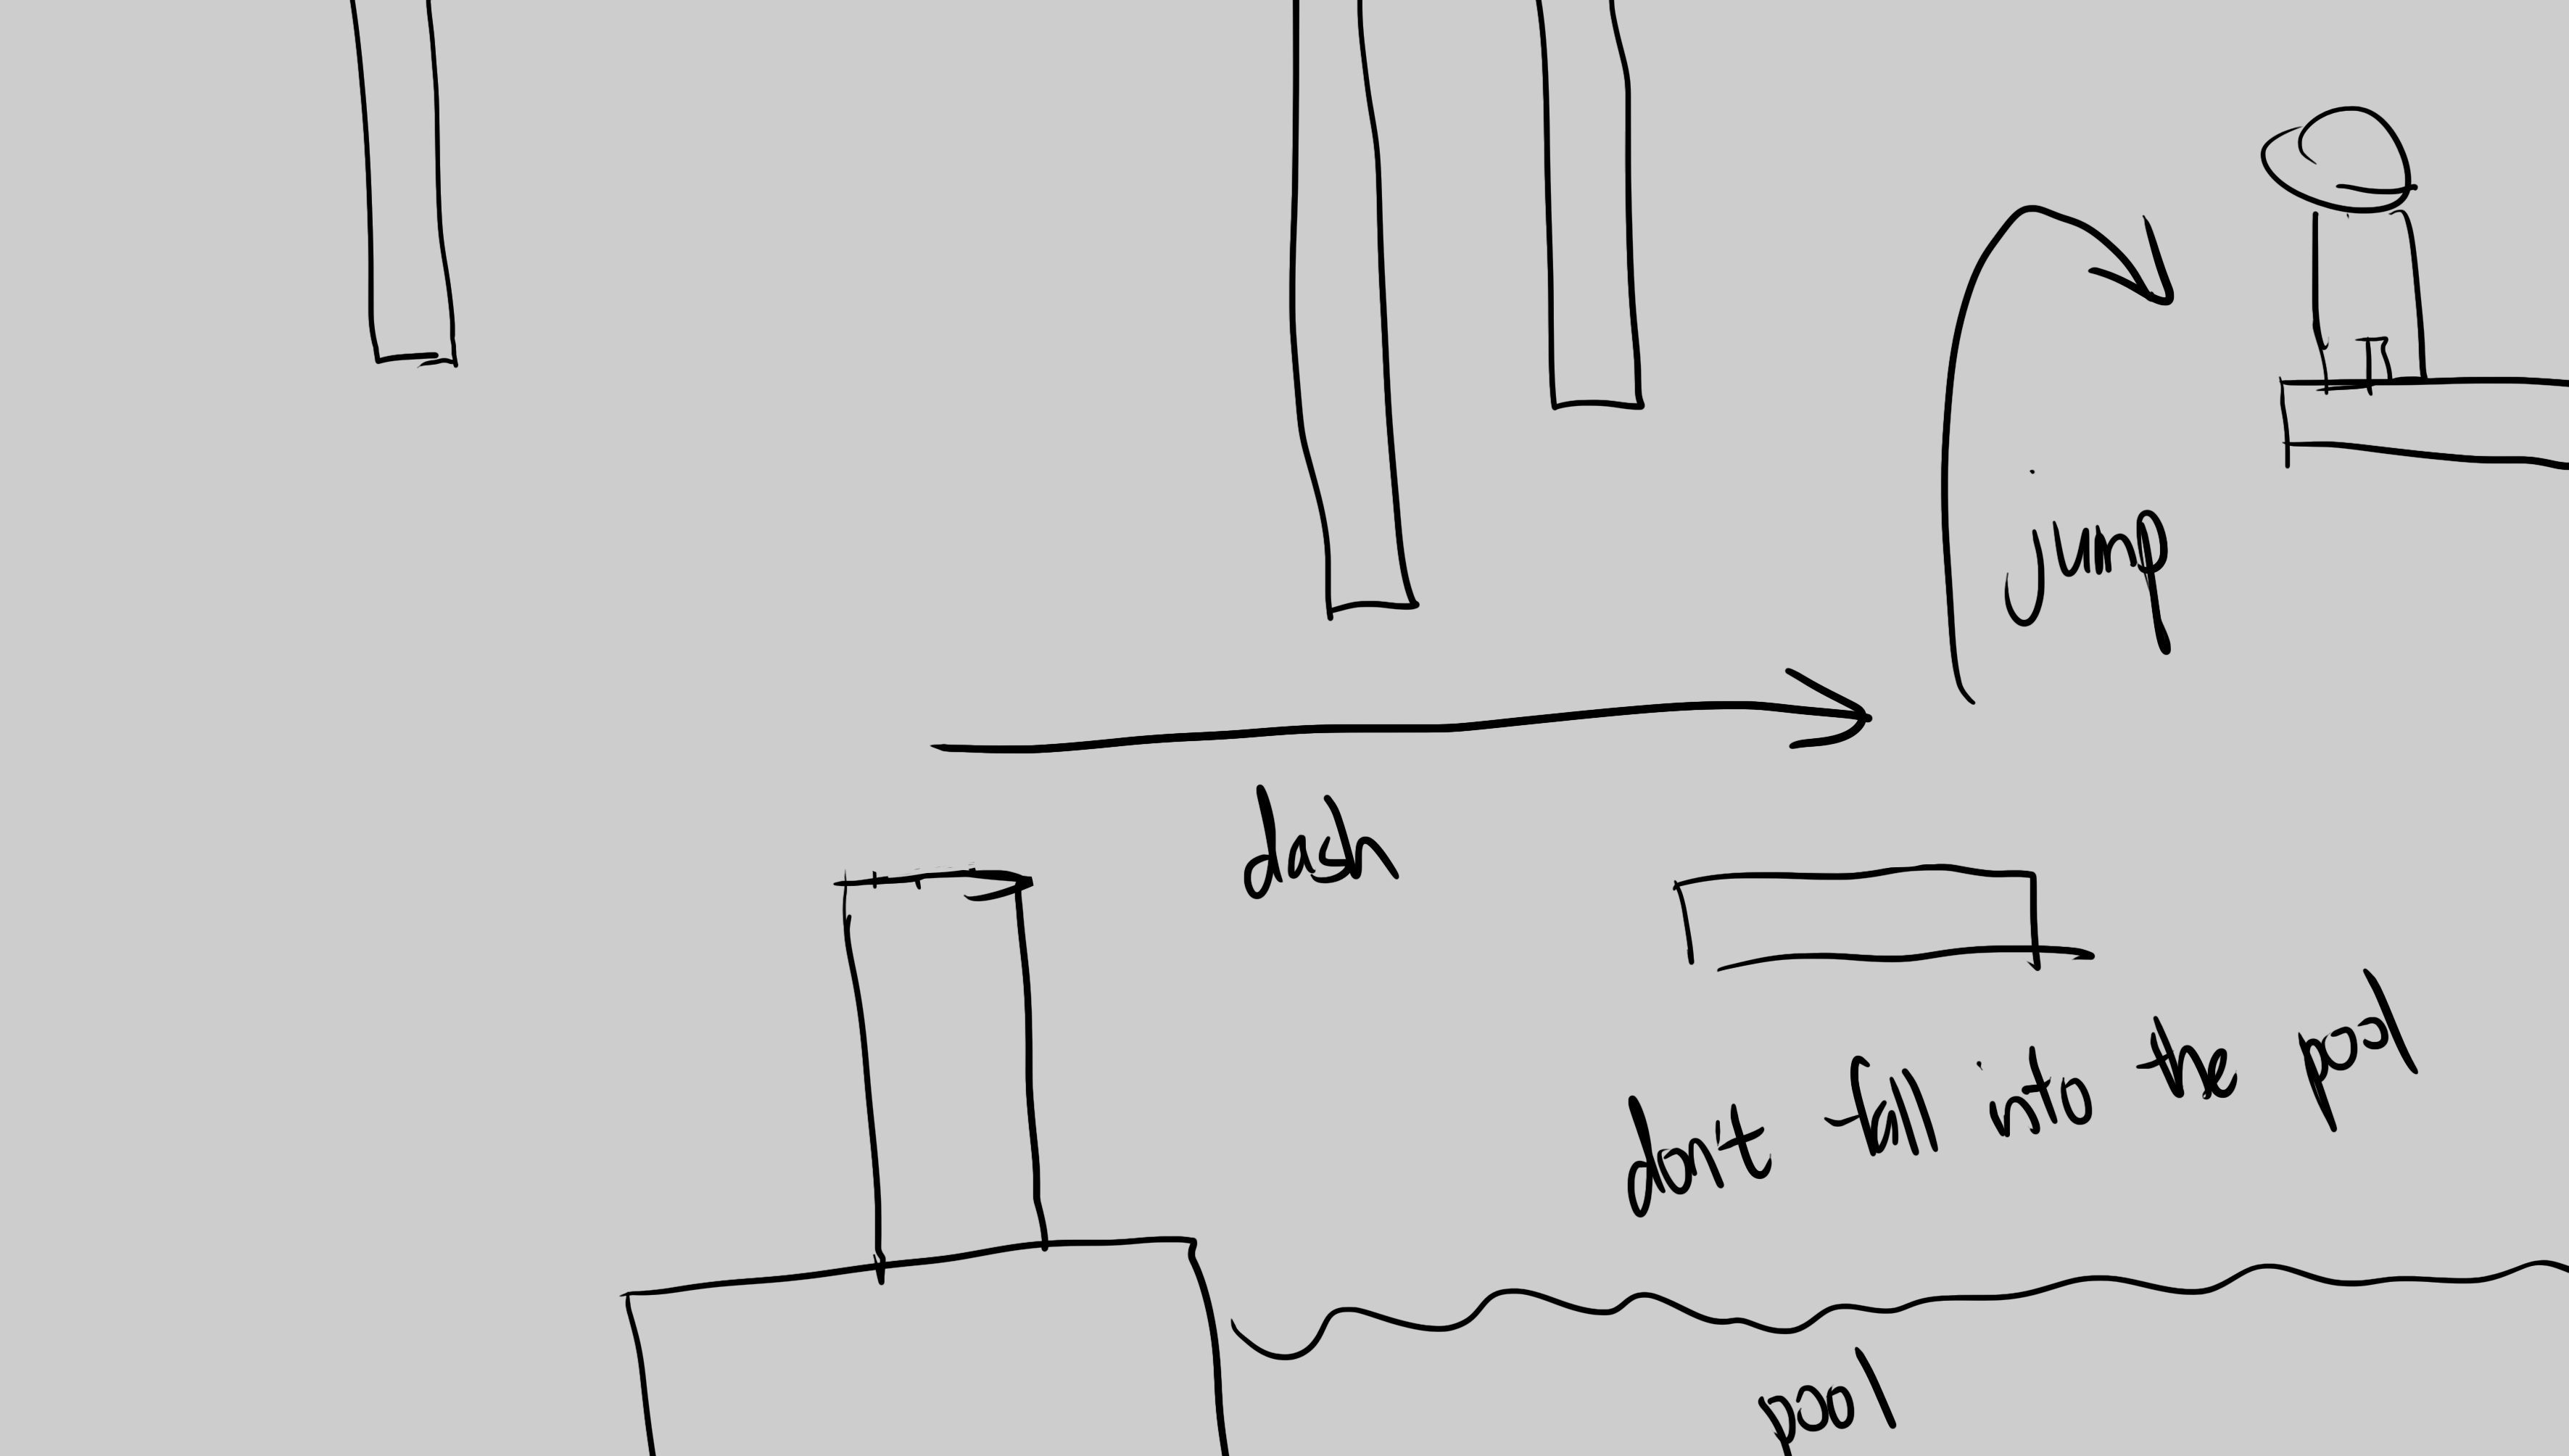 jump
dash
don't fall into the pool
pool